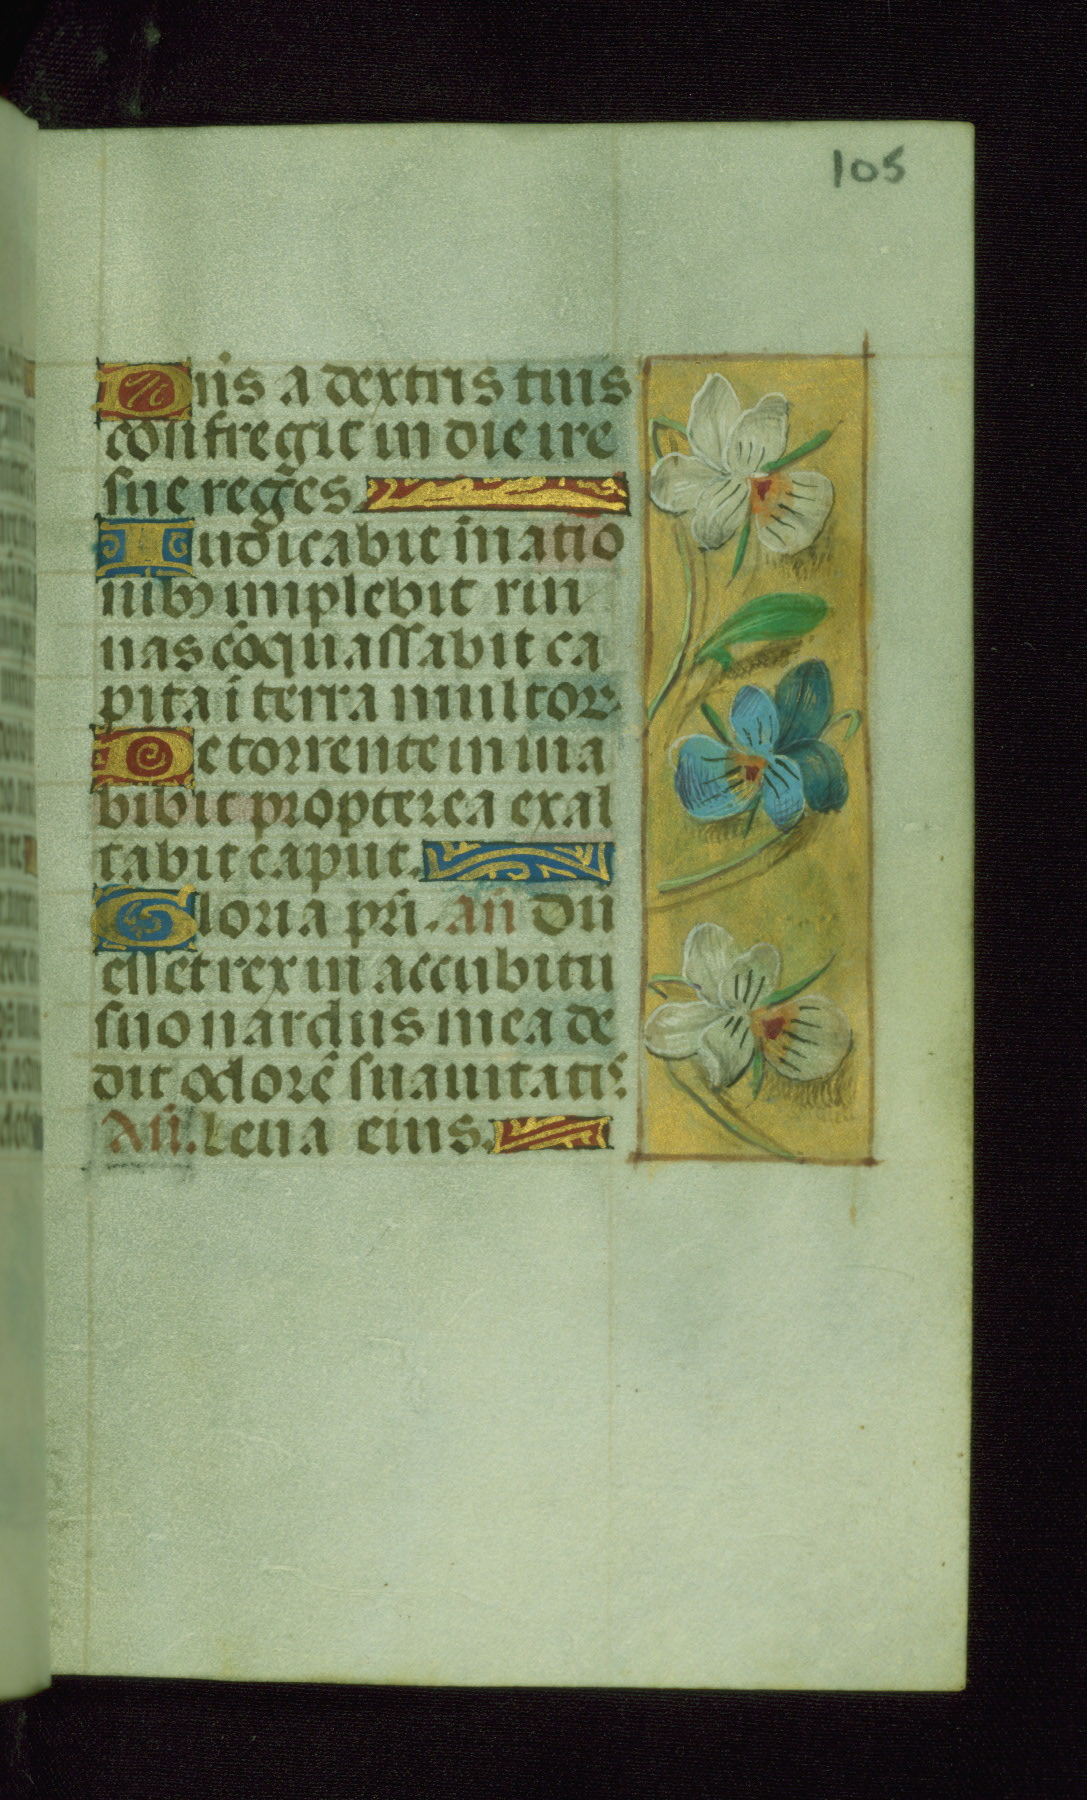 105
Dn̄s a dextris tuis
confregit in die ire
sue reges
Iudicabit ī natio
nibꝫ implebit rui
nas cōquassabit ca
pita ī terra multoꝝ
De torrente in uia
bibit propterea exal
tabit caput.
Gloria pr̄i. an̄ Dū
esset rex in accubitu
suo nardus mea de
dit odorē suauitatis
An̄. Leua eius.